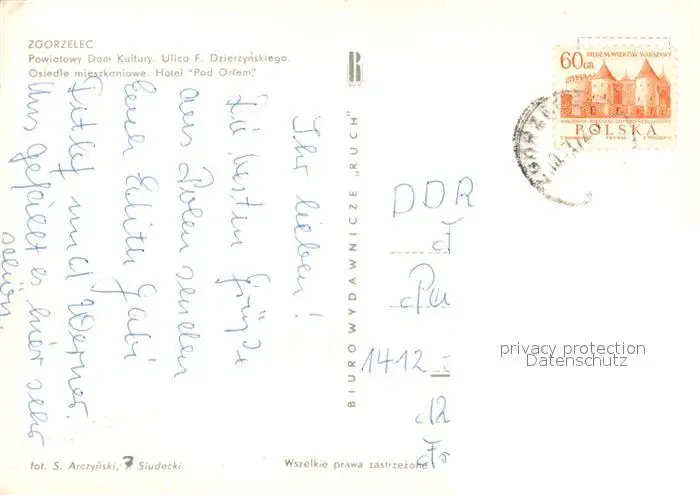 ZGORZELEC
Powiatowy Dom Kultury. Ulica F. Dzierżyńskiego.
Osiedle mieszkaniowe. Hotel "Pod Orłem."
Ihr lieben!
Die besten Grüße
aus Polen senden
Euch Edith Gabi
und Werner.
Uns gefällt es hier sehr
schön.
fot. S. Arczyński, Siudecki
Wszelkie prawa zastrzeżone
BIURO WYDAWNICZE „RUCH"
RUCH
DDR
1412
SIEDEM WIEKÓW WARSZAWY
60 GR.
POLSKA
privacy protection
Datenschutz